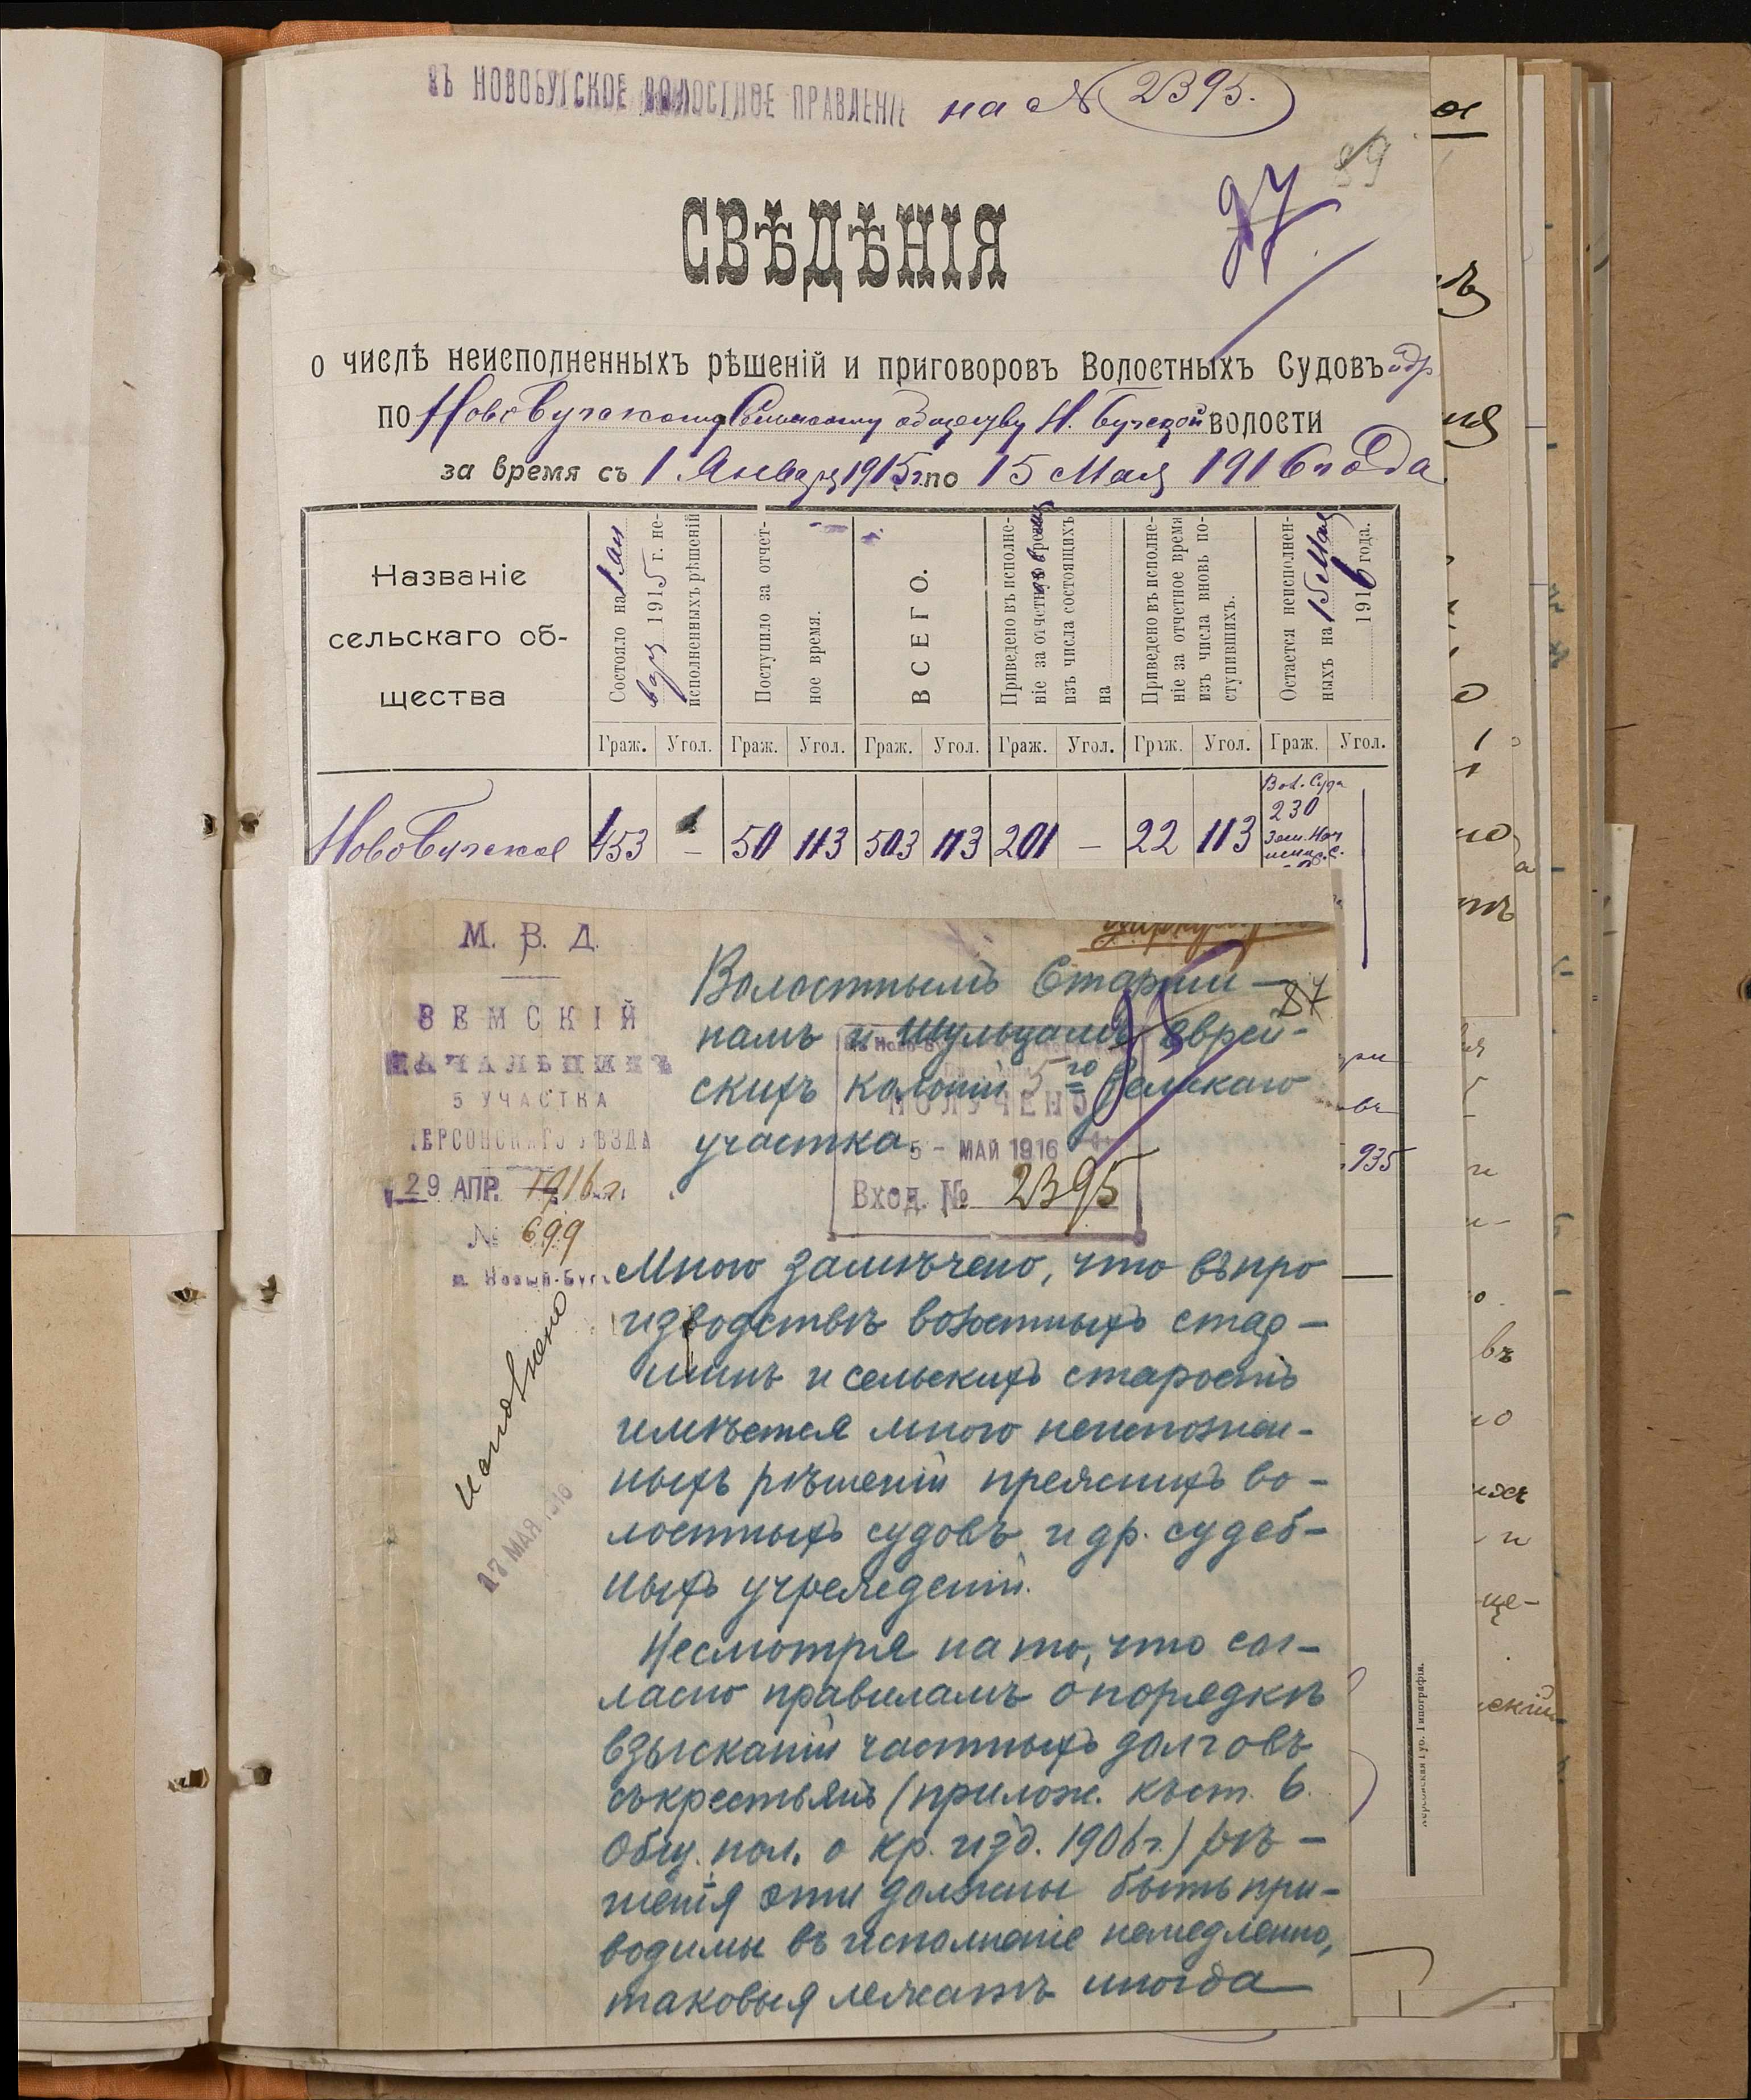 ВЪ НОВОБУГСКОЕ ВОЛОСТНОЕ ПРАВЛЕНІЕ на № 2395.
89
97.
СВѢДѢНІЯ
о числѣ неисполненныхъ рѣшеній и приговоровъ Волостныхъ Судовъ и др
по Новобугскому Сельскому обществу Н. Бугской волости
за время съ 1 Января 1915 г. по 15 Мая 1916 года
Названіе
сельскаго об-
щества
Состояло на 1 Ян
варя 1915 г. не-
исполненныхъ рѣшеній
Поступило за отчет-
ное время.
ВСЕГО.
Приведено въ исполне-
ніе за отчетное время
изъ числа состоящихъ
на
Приведено въ исполне-
ніе за отчетное время
изъ числа вновь по-
ступившихъ.
Остается неисполнен-
ныхъ на 15 Мая
1916 года.
Граж. Угол. Граж. Угол. Граж. Угол. Граж. Угол. Граж. Угол. Граж. Угол.
Новобугское 453 – 50 113 503 113 201 – 22 113 Вол. Суда
230
Зем. Нач
М. В. Д.
ЗЕМСКІЙ
НАЧАЛЬНИКЪ
5 УЧАСТКА
ХЕРСОНСКАГО УѢЗДА
29 АПР. 1916 г.
№ 699
м. Новый-Бугъ
исполнено
17 МАЯ 1916
87
Волостнымъ Старши-
намъ и Шульцамъ еврей-
скихъ колоній 5го Земскаго
участка.
ПОЛУЧЕНО
5 - МАЙ 1916
Вход. № 2395
Мною замѣчено, что въ про
изводствѣ волостныхъ стар-
шинъ и сельскихъ старостъ
имѣется много неисполнен-
ныхъ рѣшеній прежнихъ во-
лостныхъ судовъ и др. судеб-
ныхъ учрежденій.
Несмотря на то, что сог-
ласно правиламъ о порядкѣ
взысканій частныхъ долговъ
съ крестьянъ (прилож. къ ст. 6.
Общ. пол. о кр. изд. 1906 г.) рѣ-
шенія эти должны быть при-
водимы въ исполненіе немедленно,
таковыя лежатъ иногда
935
Херсонская Губ. Типографія.